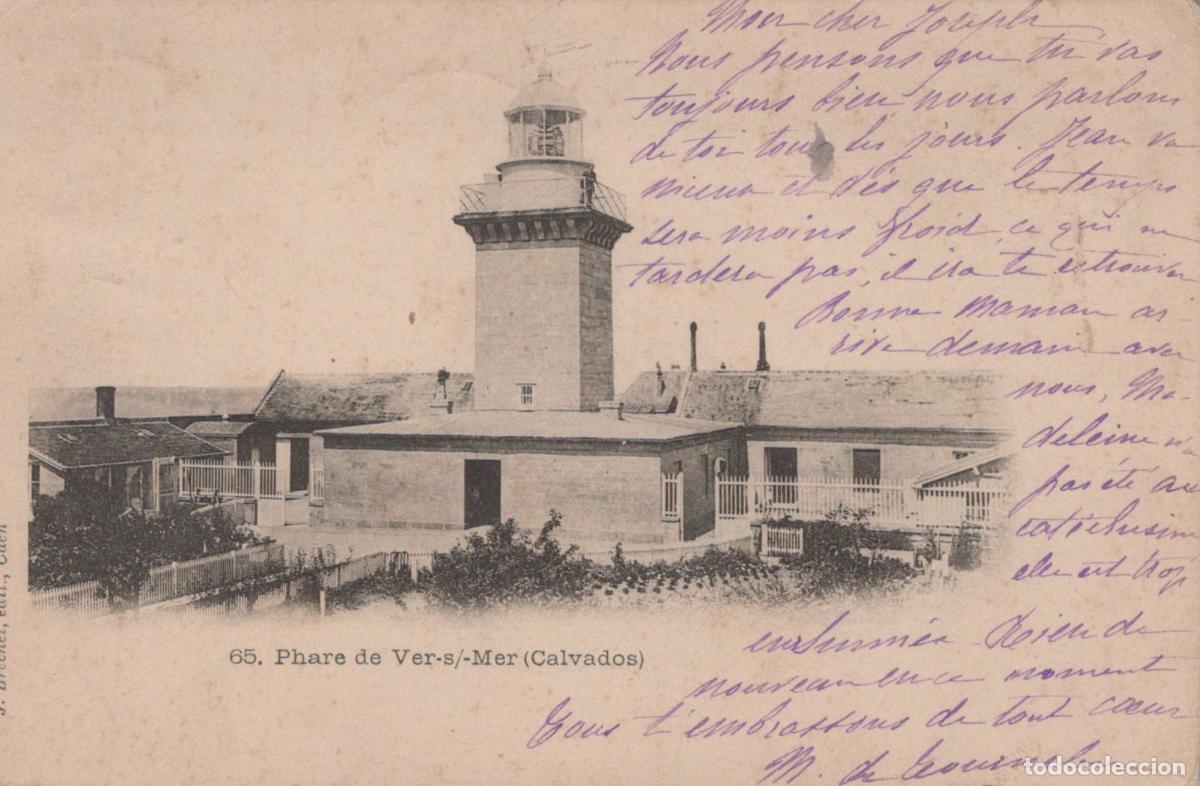 Mon cher Joseph
Nous pensons que tu vas
toujours bien, nous parlons
de toi tous les jours. Jean va
mieux et dès que le temps
sera moins froid, ce qui ne
tardera pas, il ira te retrouver
Bonne Maman ar-
rive demain avec
nous, Ma-
deleine n'a
pas été au
catéchisme
elle est trop
enrhumée. Rien de
nouveau en ce moment
Tous t'embrassons de tout cœur
M. de
65. Phare de Ver-s/-Mer (Calvados)
J. Bréchet, édit., Caen
todocoleccion